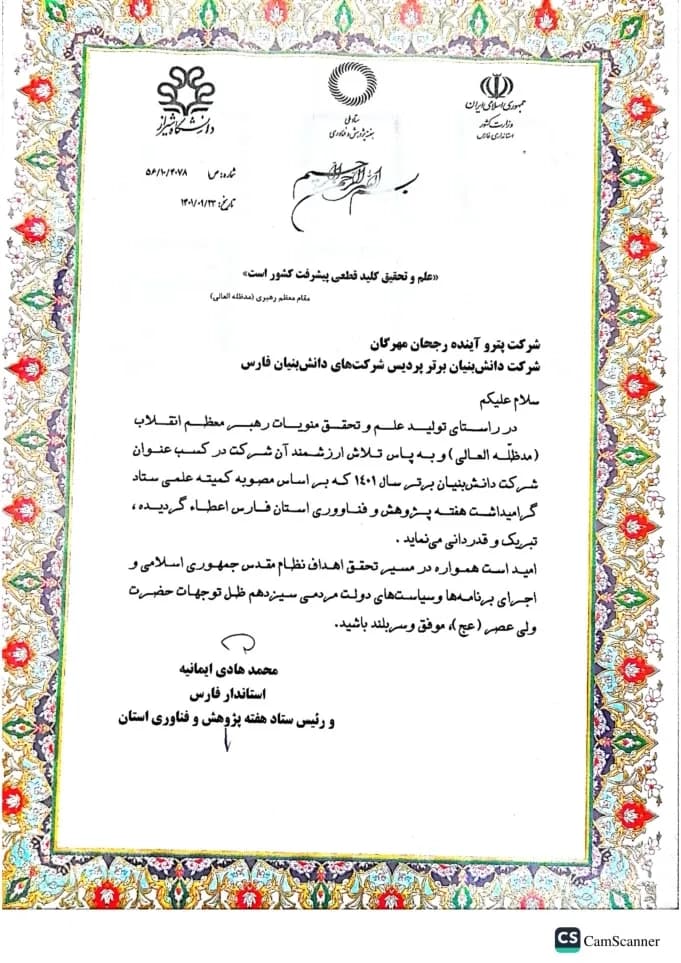 جمهوری اسلامی ایران
وزارت کشور
استانداری فارس
ستاد ملی
هفته پژوهش و فناوری
دانشگاه شیراز
شماره: ص ۵۶/۱۰/۴۰۷۸
تاریخ: ۱۴۰۱/۰۹/۲۳
بسم الله الرحمن الرحیم
«علم و تحقیق کلید قطعی پیشرفت کشور است»
مقام معظم رهبری (مدظله العالی)
شرکت پترو آینده رجحان مهرگان
شرکت دانش‌بنیان برتر پردیس شرکت‌های دانش‌بنیان فارس
سلام علیکم
در راستای تولید علم و تحقق منویات رهبر معظم انقلاب
(مدظلّه العالی) و به پاس تلاش ارزشمند آن شرکت در کسب عنوان
شرکت دانش‌بنیان برتر سال ۱۴۰۱ که بر اساس مصوبه کمیته علمی ستاد
گرامیداشت هفته پژوهش و فناوری استان فارس اعطاء گردیده،
تبریک و قدردانی می‌نماید.
امید است همواره در مسیر تحقق اهداف نظام مقدس جمهوری اسلامی و
اجرای برنامه‌ها وسیاست‌های دولت مردمی سیزدهم ظل توجهات حضرت
ولی عصر (عج)، موفق وسربلند باشید.
محمد هادی ایمانیه
استاندار فارس
و رئیس ستاد هفته پژوهش و فناوری استان
CS CamScanner